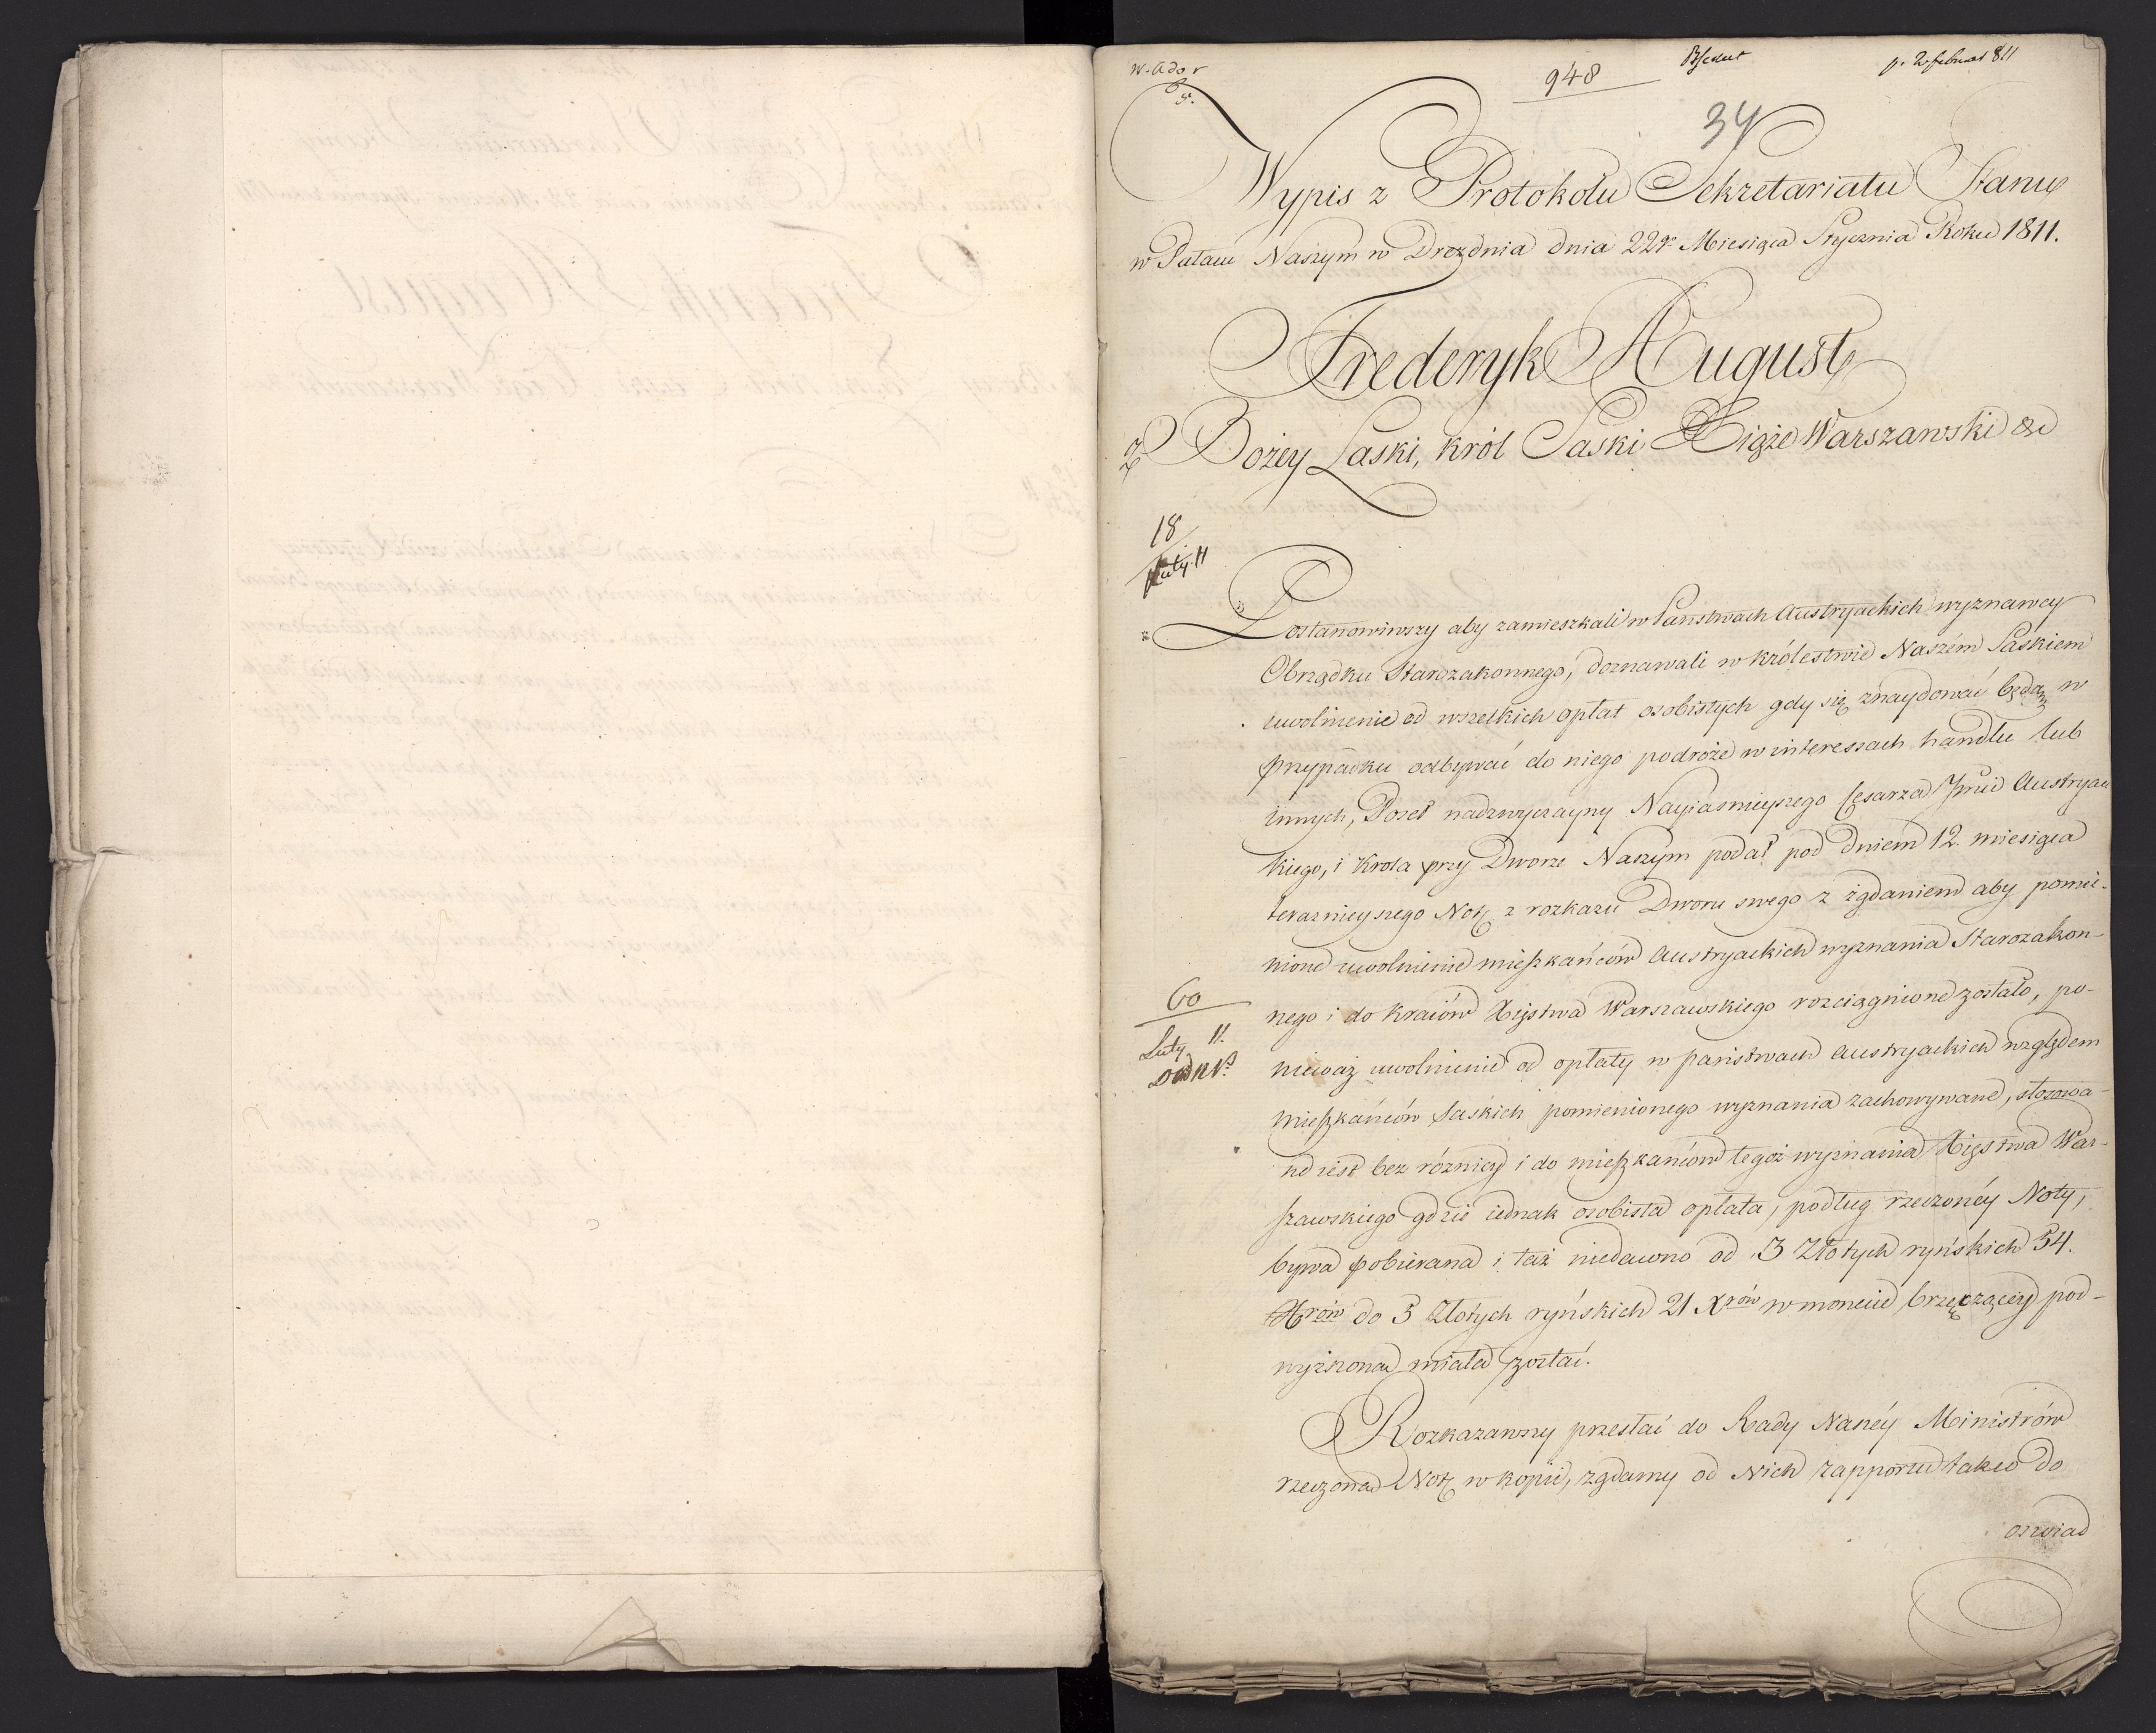 948
p. 2 februar 811
34
Wypis z Protokołu Sekretariatu Stanu
w Pałacu Naszym w Dreznia dnia 22go Miesiąca Stycznia Roku 1811.
Frederyk August
z Bożey Łaski, Król Saski Xiąże Warszawski &c
18
Luty 11
Postanowiwszy aby zamieszkali w Państwach Austryackich wyznawcy
Obrządku Starozakonnego, doznawali w królestwie Naszém Saskiem
uwolnienie od wszelkich opłat osobistych gdy się znaydować będą w
przypadku odbywać do niego podróże w interessach handlu lub
innych, Poseł nadzwyczayny Nayiasnieyszego Cesarza Jmci Austryac
kiego, i Krola przy Dworze Naszym podał pod dniem 12. miesiąca
terazniejszego Notę z rozkazu Dworu swego z żądaniem aby pomie-
nione uwolnienie mieszkańców Austryackich wyznania Starozakon-
nego i do kraiów Xięstwa Warszawskiego rozciągnione zostało, po-
60
Luty 11.
nieważ uwolnienie od opłaty w państwach austryackich względem
mieszkańców Saskich pomienionego wyznania zachowywane, stosowa-
ne iest bez różnicy i do mieszkańców tegoż wyznania Xięstwa War-
szawskiego gdzie iednak osobista opłata, podług rzeczonéy Noty,
bywa pobierana i taż niedawno od 3 Złotych ryńskich 54.
Xrów do 5 Złotych ryńskich 21 Xrów w monecie brzęczącéy pod-
wyższona miała zostać.
Rozkazawszy przesłać do Rady Naszéy Ministrów
rzeczona Notę w kopii, żądamy od Nich rapportu tak co do
oswiad